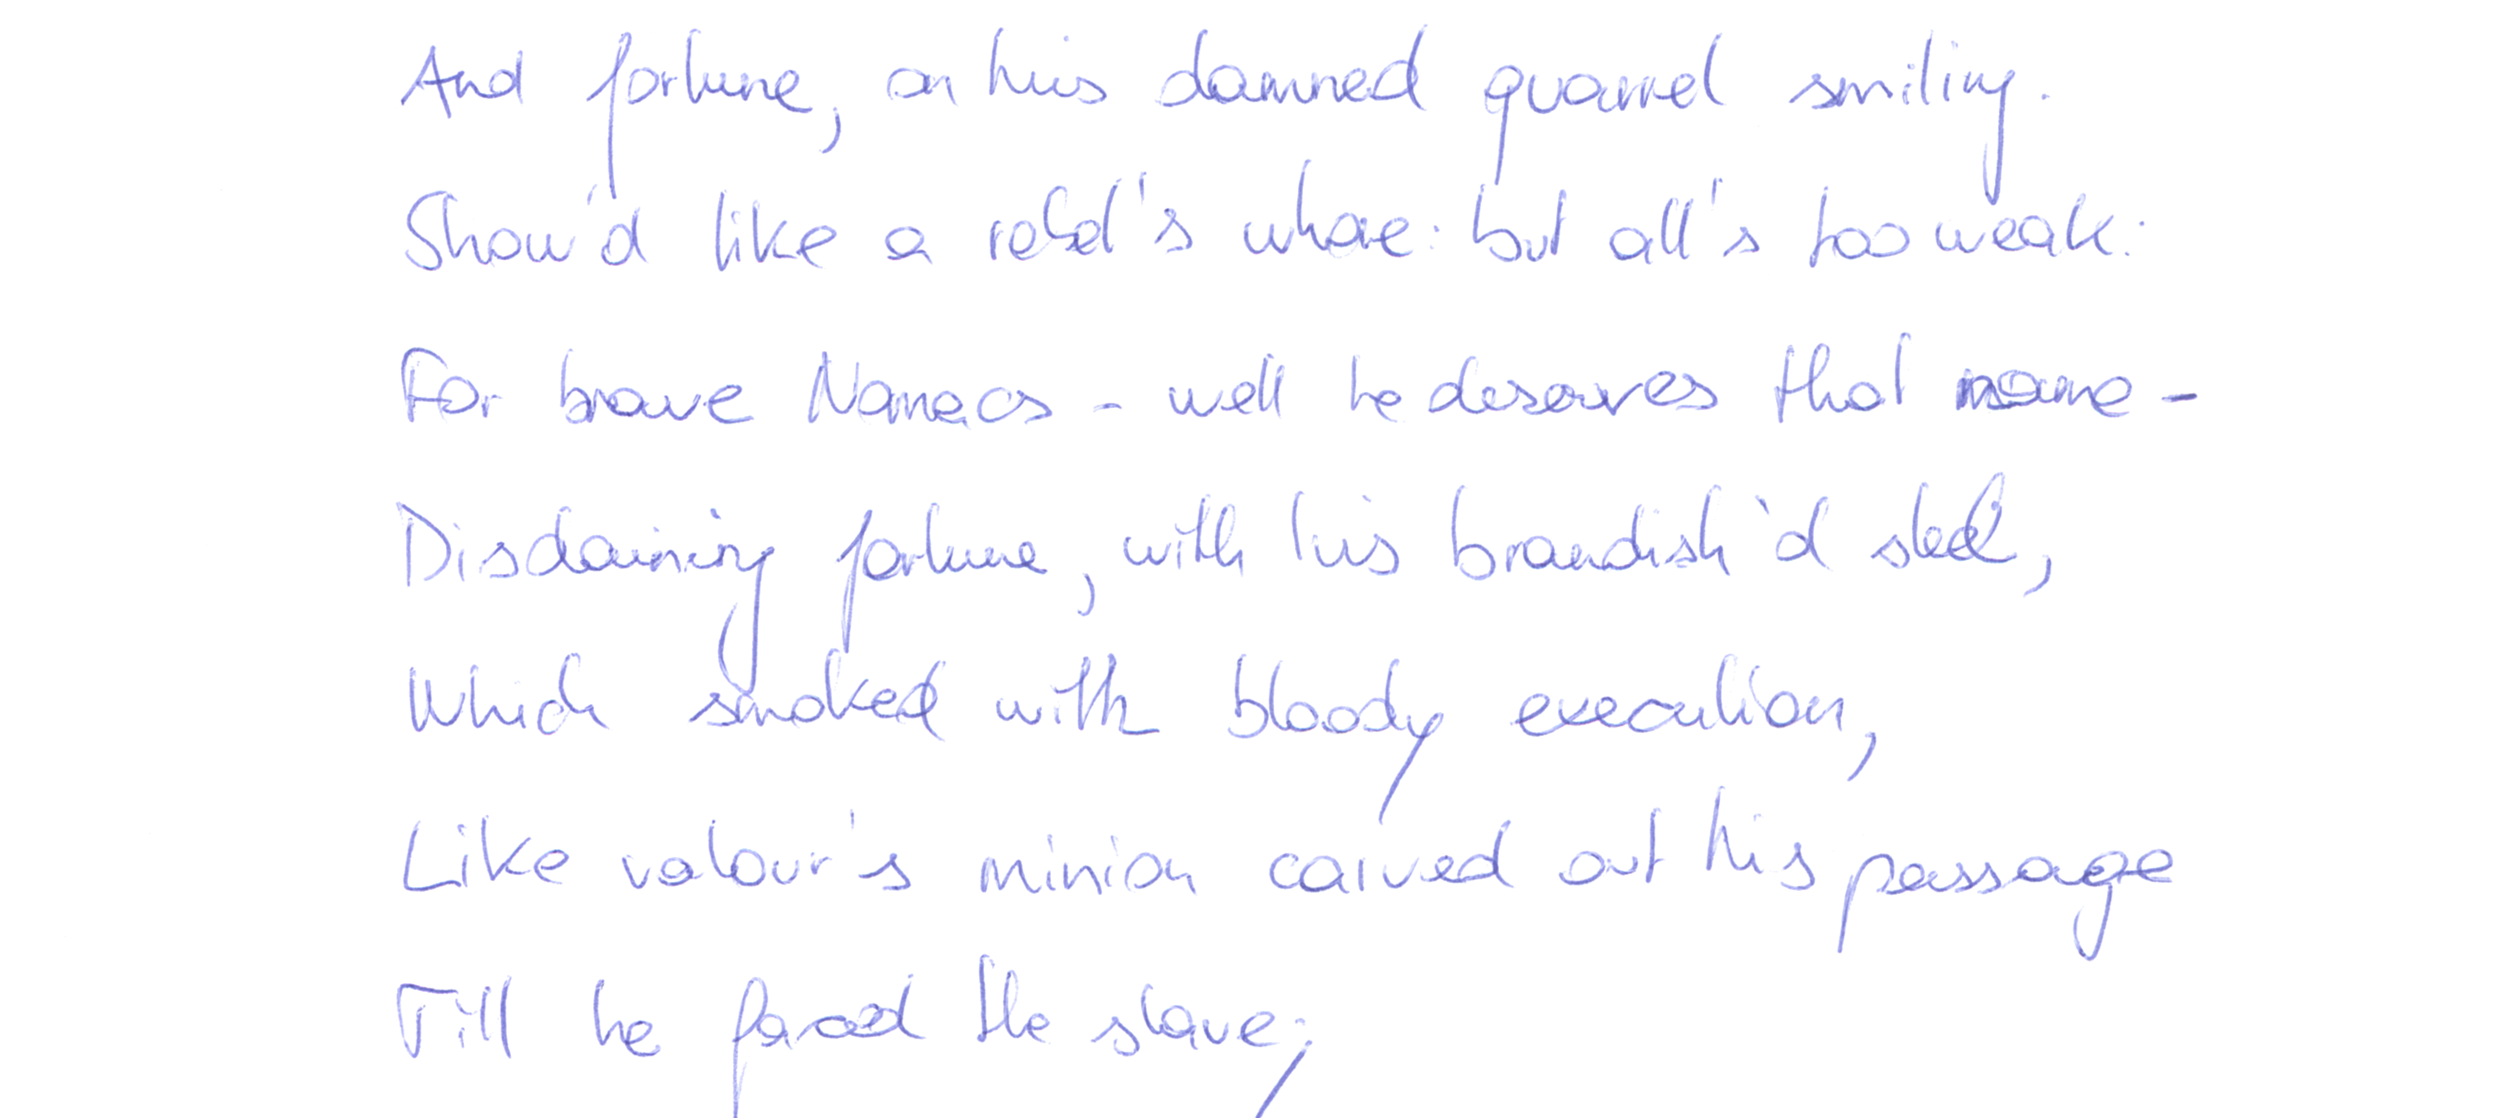 And fortune, on his damned quarrel smiling.
Show'd like a rebel's whore: but all's too weak:
For brave Nameos - well he deserves that name -
Disdaining fortune, with his brandish'd steel,
Which smoked with bloody execution,
Like valour's minion carved out his passage
Till he faced the slave;